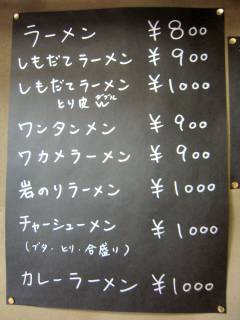 ラーメン ¥800
しもだてラーメン ¥900
しもだてラーメン ¥1000
とり皮 ダブルW
ワンタンメン ¥900
ワカメラーメン ¥900
岩のりラーメン ¥1000
チャーシューメン ¥1000
(ブタ・とり・合盛り)
カレーラーメン ¥1000